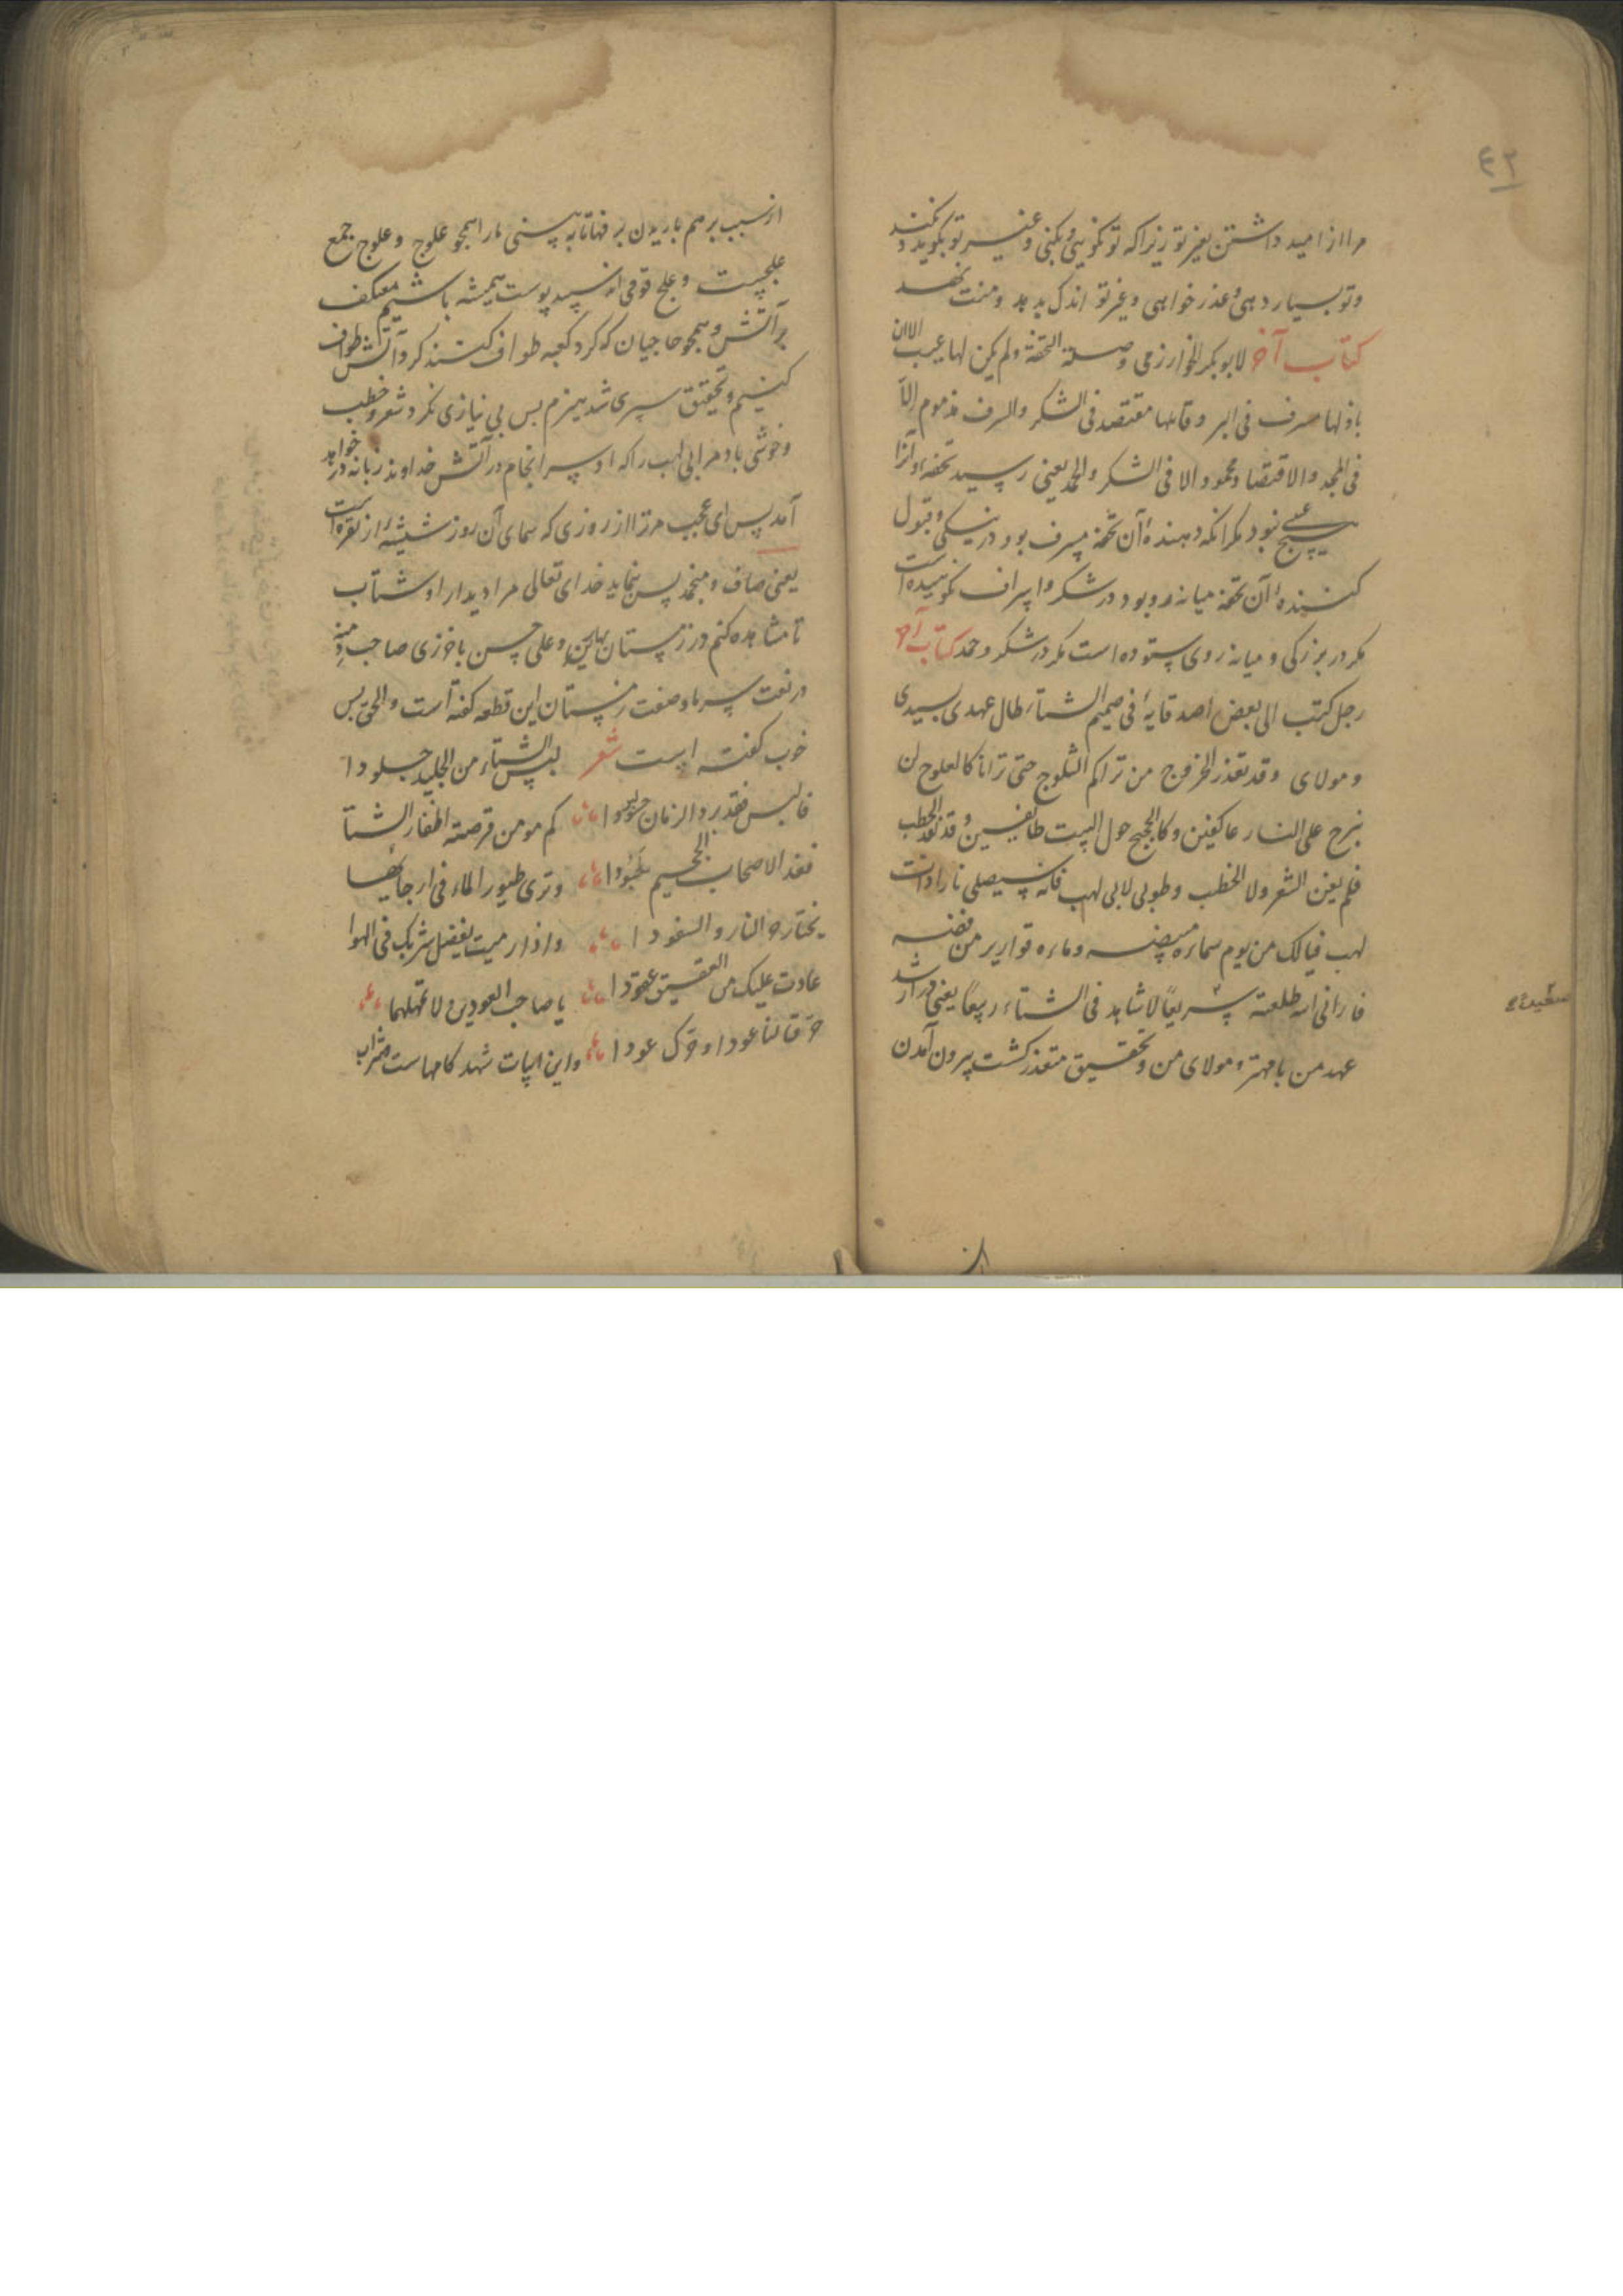 ٤٢
مرا از امید داشتن بغیر تو زیرا که تو نکویی و بکنی و غیر تو بگوید و نکند
و تو بسیار دهی و عذر خواهی و غیر تو اندک بدهد و منت نهد
کتاب آخر لابوبکر الخوارزمی وصلة التحفة و لم یکن لها عیب الا ان
باذلها مسرف فی البر و قابلها مقتصد فی الشکر والسرف مذموم الّا
فی المجد والاقتصاد محمود الا فی الشکر والحمد یعنی رسید تحفه و آنرا
هیچ عیبی نبود مکر انکه دهندۀ آن تحفه مسرف بود در نیکی و قبول
کنندۀ آن تحفه میانه رو بود در شکر و اسراف نکوهیده است
مکر در بزرکی و میانه روی ستوده است مکر در شکر و حمد کتاب آخر
رجل کتب الی بعض اصدقایهٔ فی صمیم الشتاء طال عهدی بسیدی
و مولای و قد تعذر الخروج من تراکم الثلوج حتی ترانا کالعلوج لن
نبرح علی النار عاکفین و کالحجیج حول البیت طایفین و قد نفد الحطب
فلم یغن الشعر ولا الخطب و طوبی لابی لهب فانه سیصلی نارا ذات
لهب فیالک من یوم سماءه مبیضه و ماءه قواریر من فضه
فارانی الله طلعته سریعًا لاشاهد فی الشتاء ربیعًا یعنی دراز شد
عهد من با مهتر و مولای من و تحقیق متعذر کشت بیرون آمدن
از سبب بر هم باریدن برفها تا به بینی ما را همچو علوج و علوج جمع
علجست و علج قومی اند سپید پوست همیشه باشیم معتکف
بر آتش و همچو حاجیان که کرد کعبه طواف کنند کرد آتش طواف
کنیم و تحقیق سپری شد هیزم پس بی نیازی نکرد شعر و خطب
و خوشی باد مر ابی لهب را که او سرانجام در آتش خداوند زبانه در خواهد
آمد پس ای عجب مر ترا از روزی که سمای آن روز شیشهٔ از نقره است
یعنی صاف و منجمد پس بنماید خدای تعالی مرا دیدار او شتاب
تا مشاهده کنم در زمستان بهار و علی حسن باخرزی صاحب دمیه
در نعت سرما و صفت زمستان این قطعه کفته است و الحق بس
خوب کفته است شعر لبس الشتاء من الجلید جلودا
فالبس فقد برد الزمان برودا کم مومن قرصته اظفار الشتا
فغدا لاصحاب الجحیم حسودا و تری طیور الماء فی ارجائها
تختار حر النار والسفودا و اذا رمیت بفضل شربک فی الهوا
عادت علیک من العقیق عقودا یا صاحب العودین لا تهملهما
حرق لنا عودا و حرک عودا و این ابیات شهد کامهاست و شراب